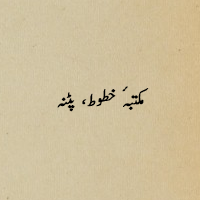 مکتبۂ خطوط، پٹنہ